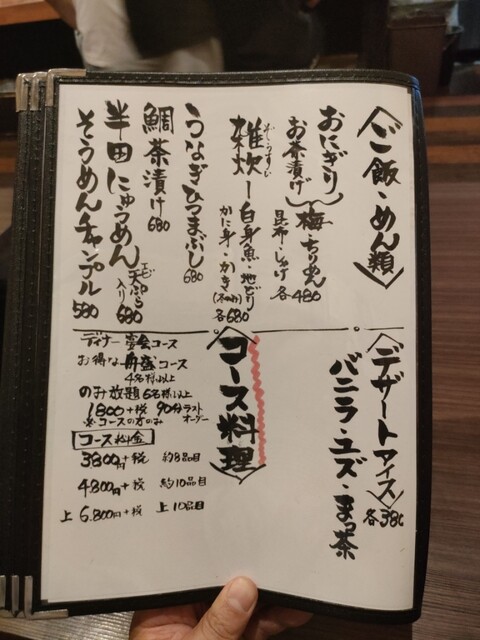 〈ご飯・めん類〉
おにぎり
お茶漬け
梅・ちりめん
昆布・しゃけ 各480
雑炊
ぞうすい
白身魚・地どり
かに身・かき
各680
うなぎひつまぶし 680
鯛茶漬け 680
半田にゅうめん
エビ天ぷら入り 680
そうめんチャンプル 580
〈デザートアイス〉各380
バニラ・ユズ・まっ茶
〈コース料理〉
ディナー 宴会コース
お得な舟盛コース
4名様以上
のみ放題 6名様以上
1800+税 90分ラストオーダー
※コースの方のみ
コース料金
3800円+税 約8品目
4.800円+税 約10品目
上 6.800円+税 上10品目